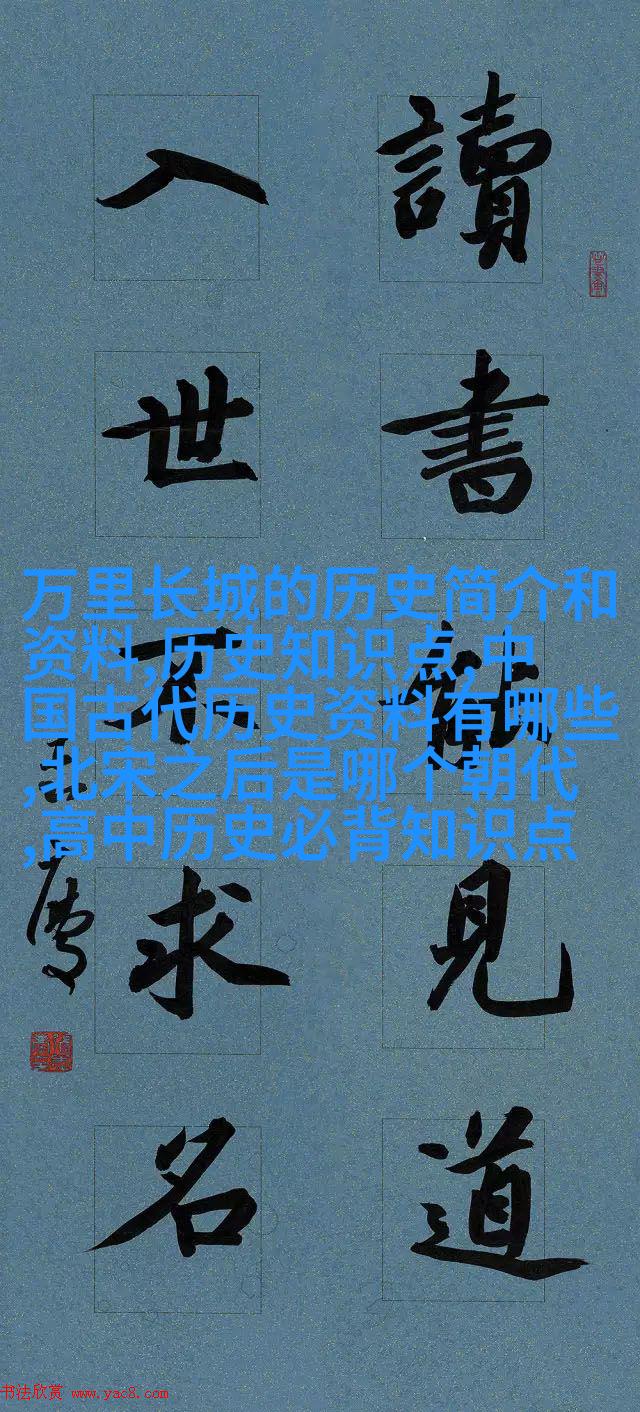 讀書能見道
入世不求名
万里长城的历史简介和
资料,历史知识点,中
国古代历史资料有哪些
,北宋之后是哪个朝代
,高中历史必背知识点
书法欣赏 www.yac8.com